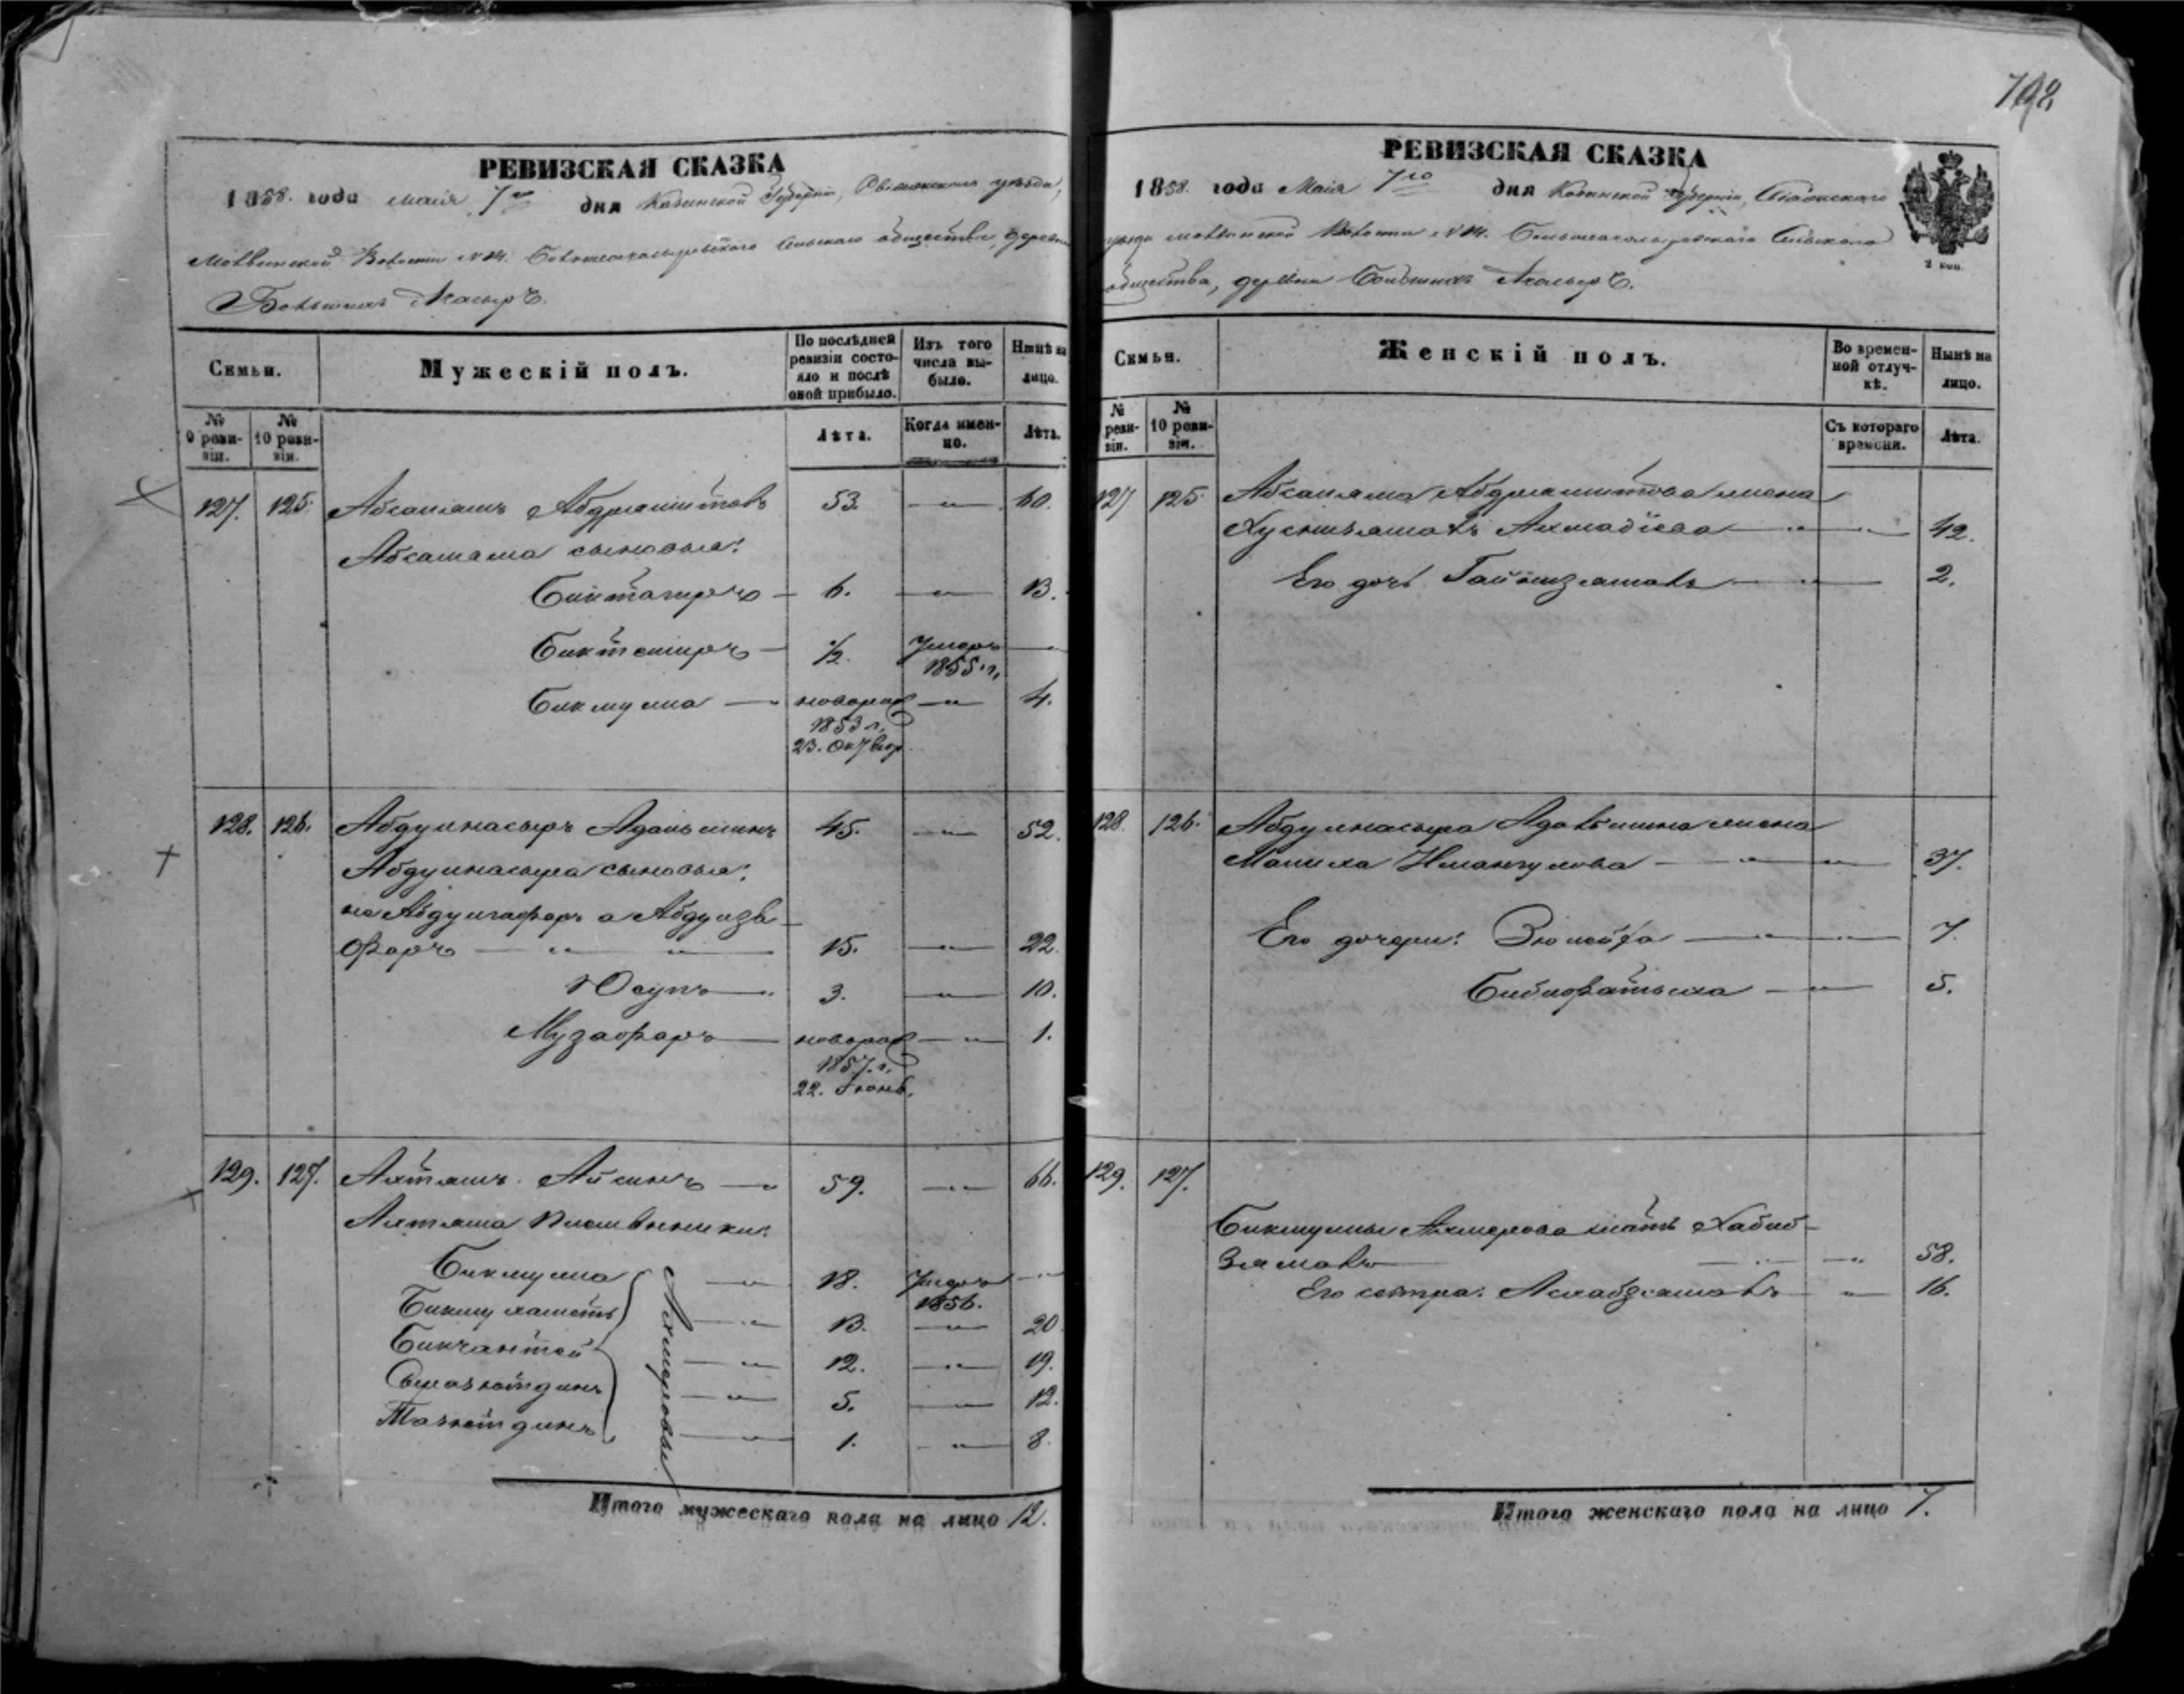 792
РЕВИЗСКАЯ СКАЗКА
1858. года Маія 7го дня Казанской Губерніи, Свіяжскаго уѣзда,
Волости №14. Большеачасырскаго Сельскаго общества, деревни
Большихъ Ачасырь.
Семьи.
Мужескій полъ.
По послѣдней ревизіи состояло и послѣ оной прибыло.
Изъ того числа выбыло.
Нынѣ на лицо.
№ 9 ревизіи.
№ 10 ревизіи.
Лѣта.
Когда именно.
Лѣта.
127. 125. Абсалямъ Абдряшитовъ 53. — 60.
Абсаляма сыновья:
Биктагиръ — 6. — 13.
Биктемиръ — 1/2. Умеръ 1855 г. —
Бикмулла — новорож — 4.
1853 г.
23. Октябр.
128. 126. Абдулнасыръ Адальшинъ 45. — 52.
Абдулнасыра сыновья:
не Абдулгафаръ а Абдулзя-
фаръ — 15. — 22.
Юсупъ — 3. — 10.
Музафаръ — новорож — 1.
1857. г.
22. Генв.
129. 127. Ахтямъ Айсинъ — 59. — 66.
Ахтяма племянники:
Бикмулла — 18. Умеръ 1856. —
Бикмухаметь — 13. — 20
Бикчантей — 12. — 19.
Сыразетдинъ — 5. — 12.
Тазетдинъ — 1. — 8.
Ахмеровы
Итого мужескаго пола на лицо 12.
РЕВИЗСКАЯ СКАЗКА
1858. года Маія 7го дня Казанской Губерніи, Свіяжскаго
уѣзда Волости №14. Большеачасырскаго Сельскаго
общества, деревни Большихъ Ачасырь.
2 коп.
Семьи.
Женскій полъ.
Во временной отлучкѣ.
Нынѣ на лицо.
№ ревизіи.
№ 10 ревизіи.
Съ котораго времени.
Лѣта.
127 125. Абсаляма Абдряшитова жена
Хуснизямалъ Ахмадіева — 42.
Его дочь Гайнизямалъ — 2.
128 126. Абдулнасыра Адальшина жена
Малиха Иманкулова — 37.
Его дочери: Зюлейфа — 7.
Бибифатыха — 5.
129. 127.
Бикмуллы Ахмерова мать Хабиб-
зямалъ — 58.
Его сестра: Асхабзямалъ — 16.
Итого женскаго пола на лицо 7.